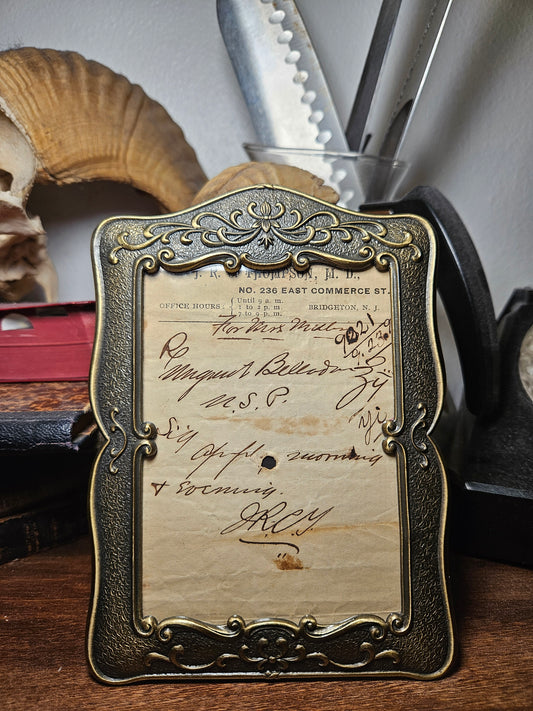 J. R. C. THOMPSON, M. D.,
NO. 236 EAST COMMERCE ST.
OFFICE HOURS: Until 9 a. m. 1 to 2 p. m. 7 to 9 p. m. BRIDGTON, N. J.
For Mrs Mill
9021
9.23.9
Rx
Unguent Bellad
N.S.P.
Sig
appl. morning
& Evening.
J.R.C.T.